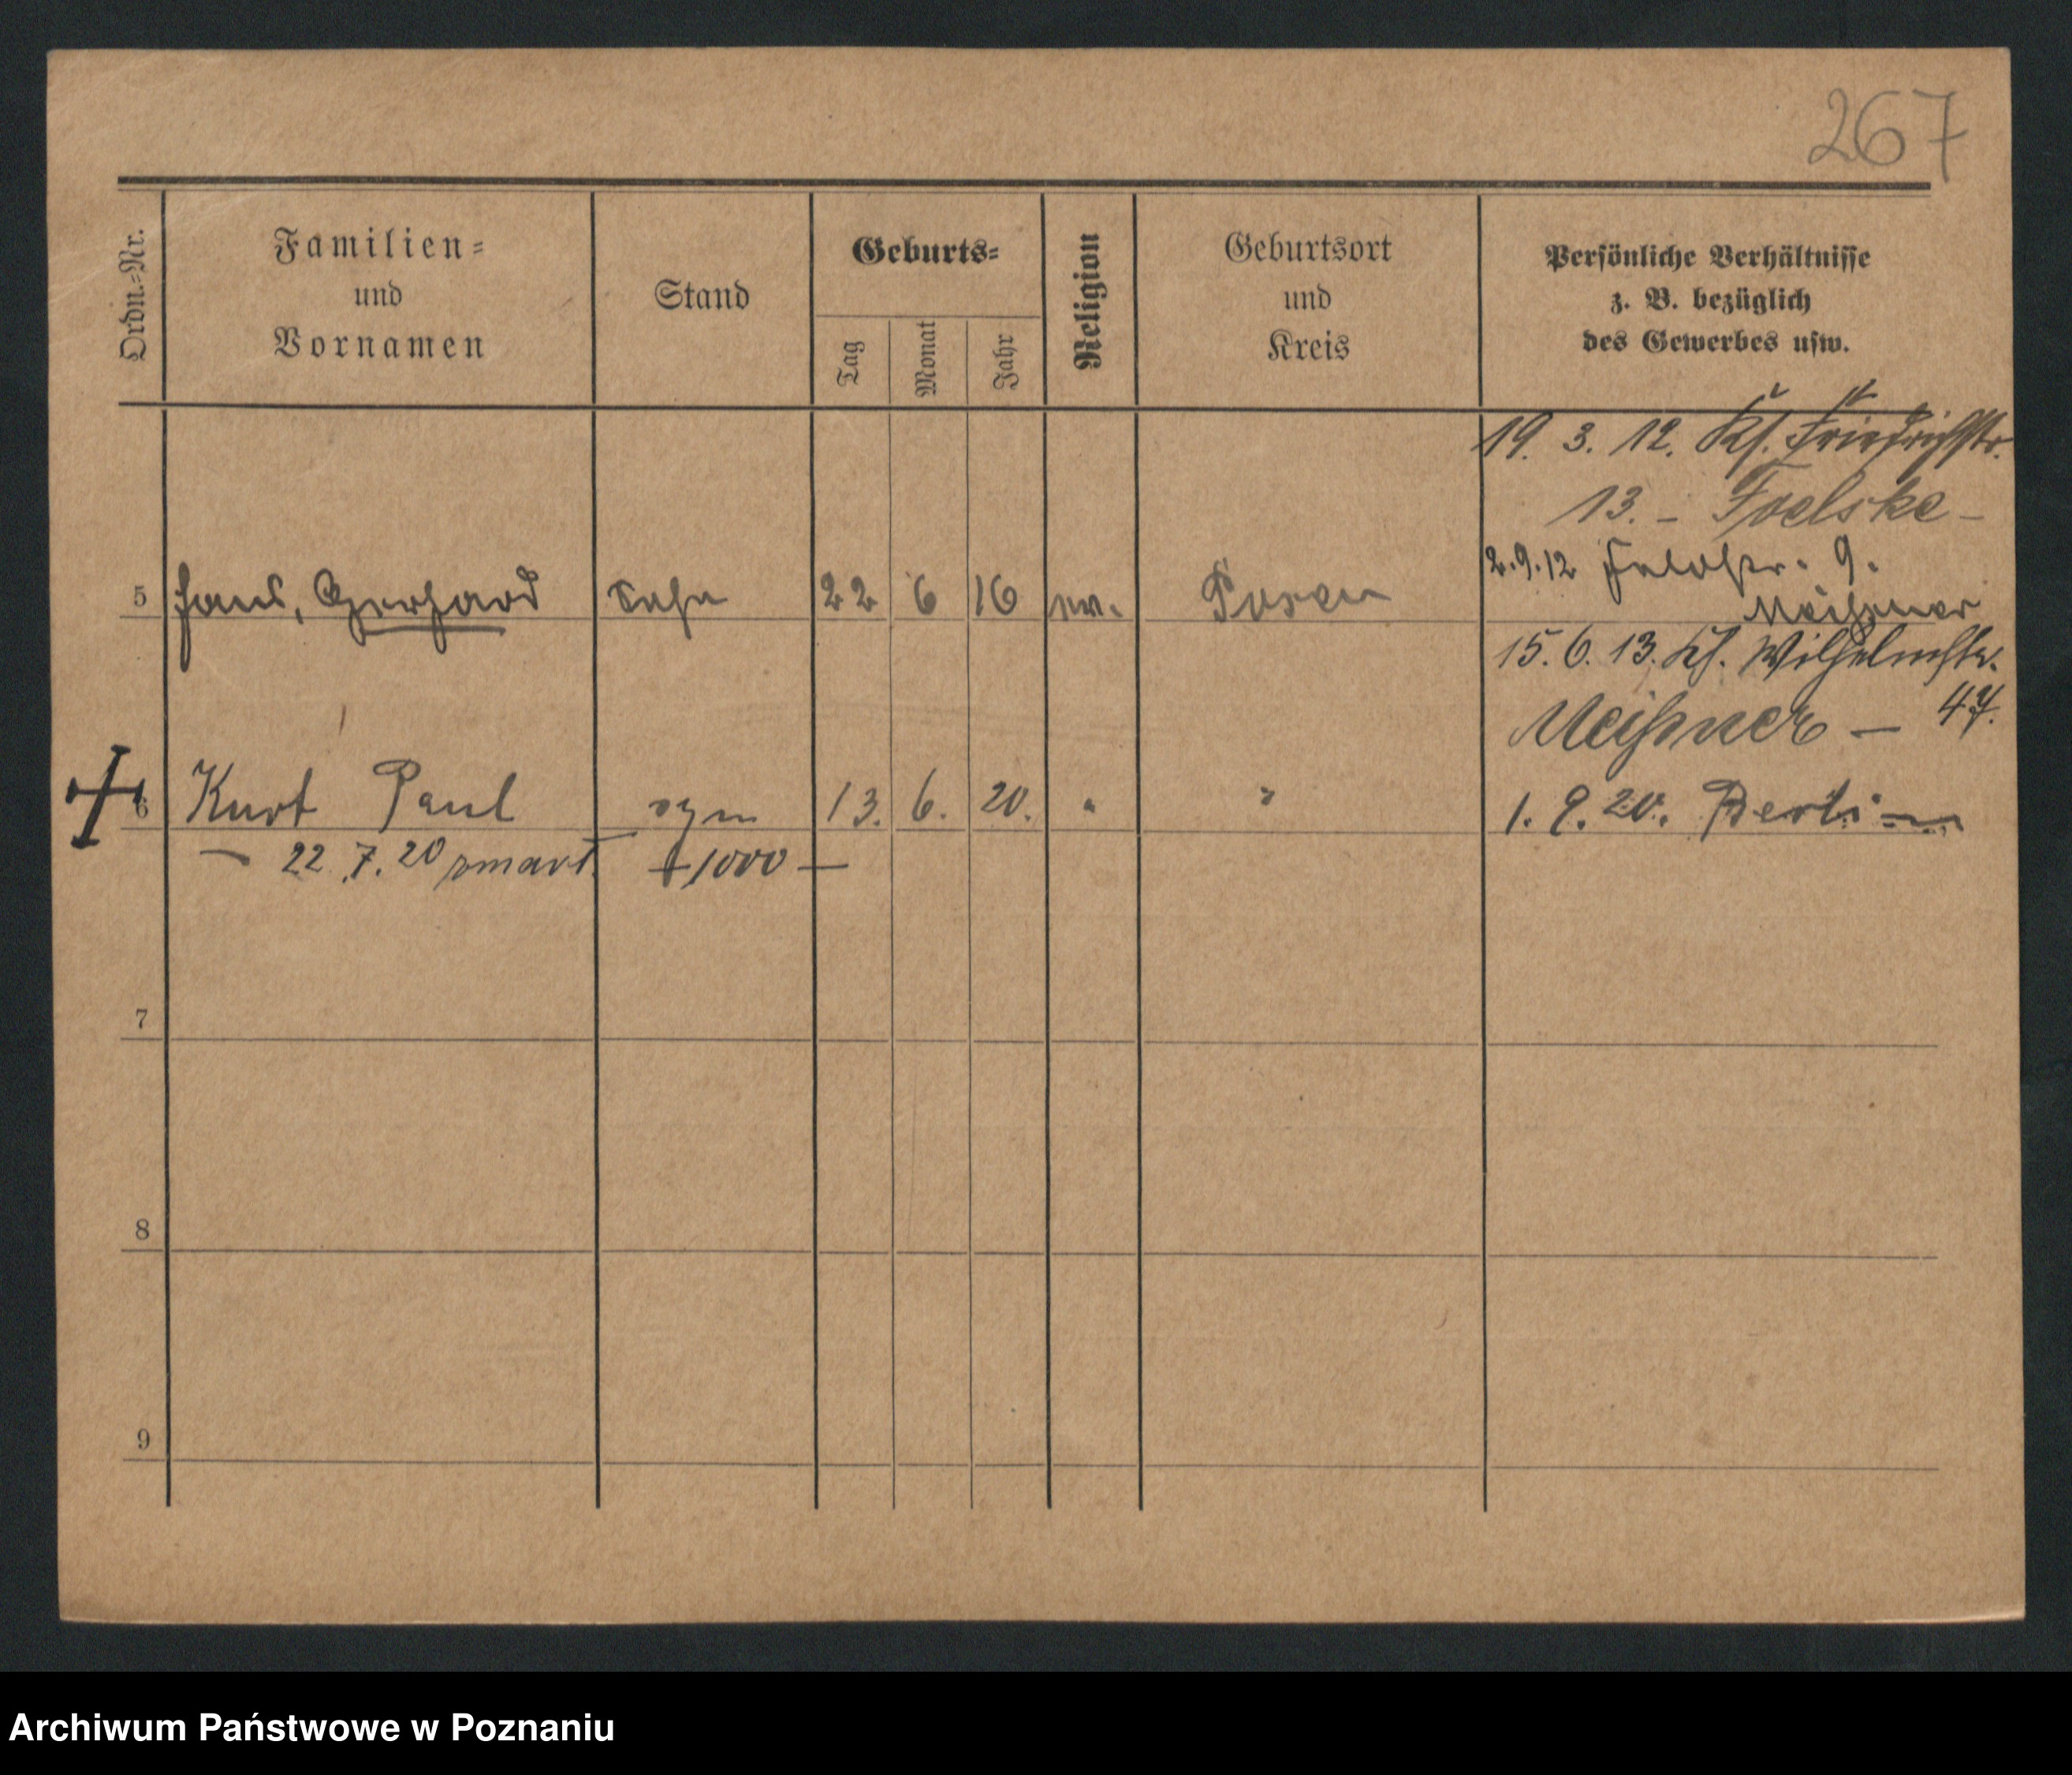 267
Ordn.=Nr.
Familien=
und
Vornamen
Stand
Geburts=
Tag
Monat
Jahr
Religion
Geburtsort
und
Kreis
Persönliche Verhältnisse
z. B. bezüglich
des Gewerbes usw.
19. 3. 12. Kf. Friedrichstr.
13. – Foelske –
2.9.12 Feldstr. 9.
Meißner
5 Hans, Gerhard Sohn 22 6 16 ev. Posen
15. 6. 13. Kf. Wilhelmstr.
47.
Meißner –
6 Kurt Paul syn 13. 6. 20. " " 1. 9. 20. Berlin
– 22.7.20 zmarł. + 1000 –
7
8
9
Archiwum Państwowe w Poznaniu